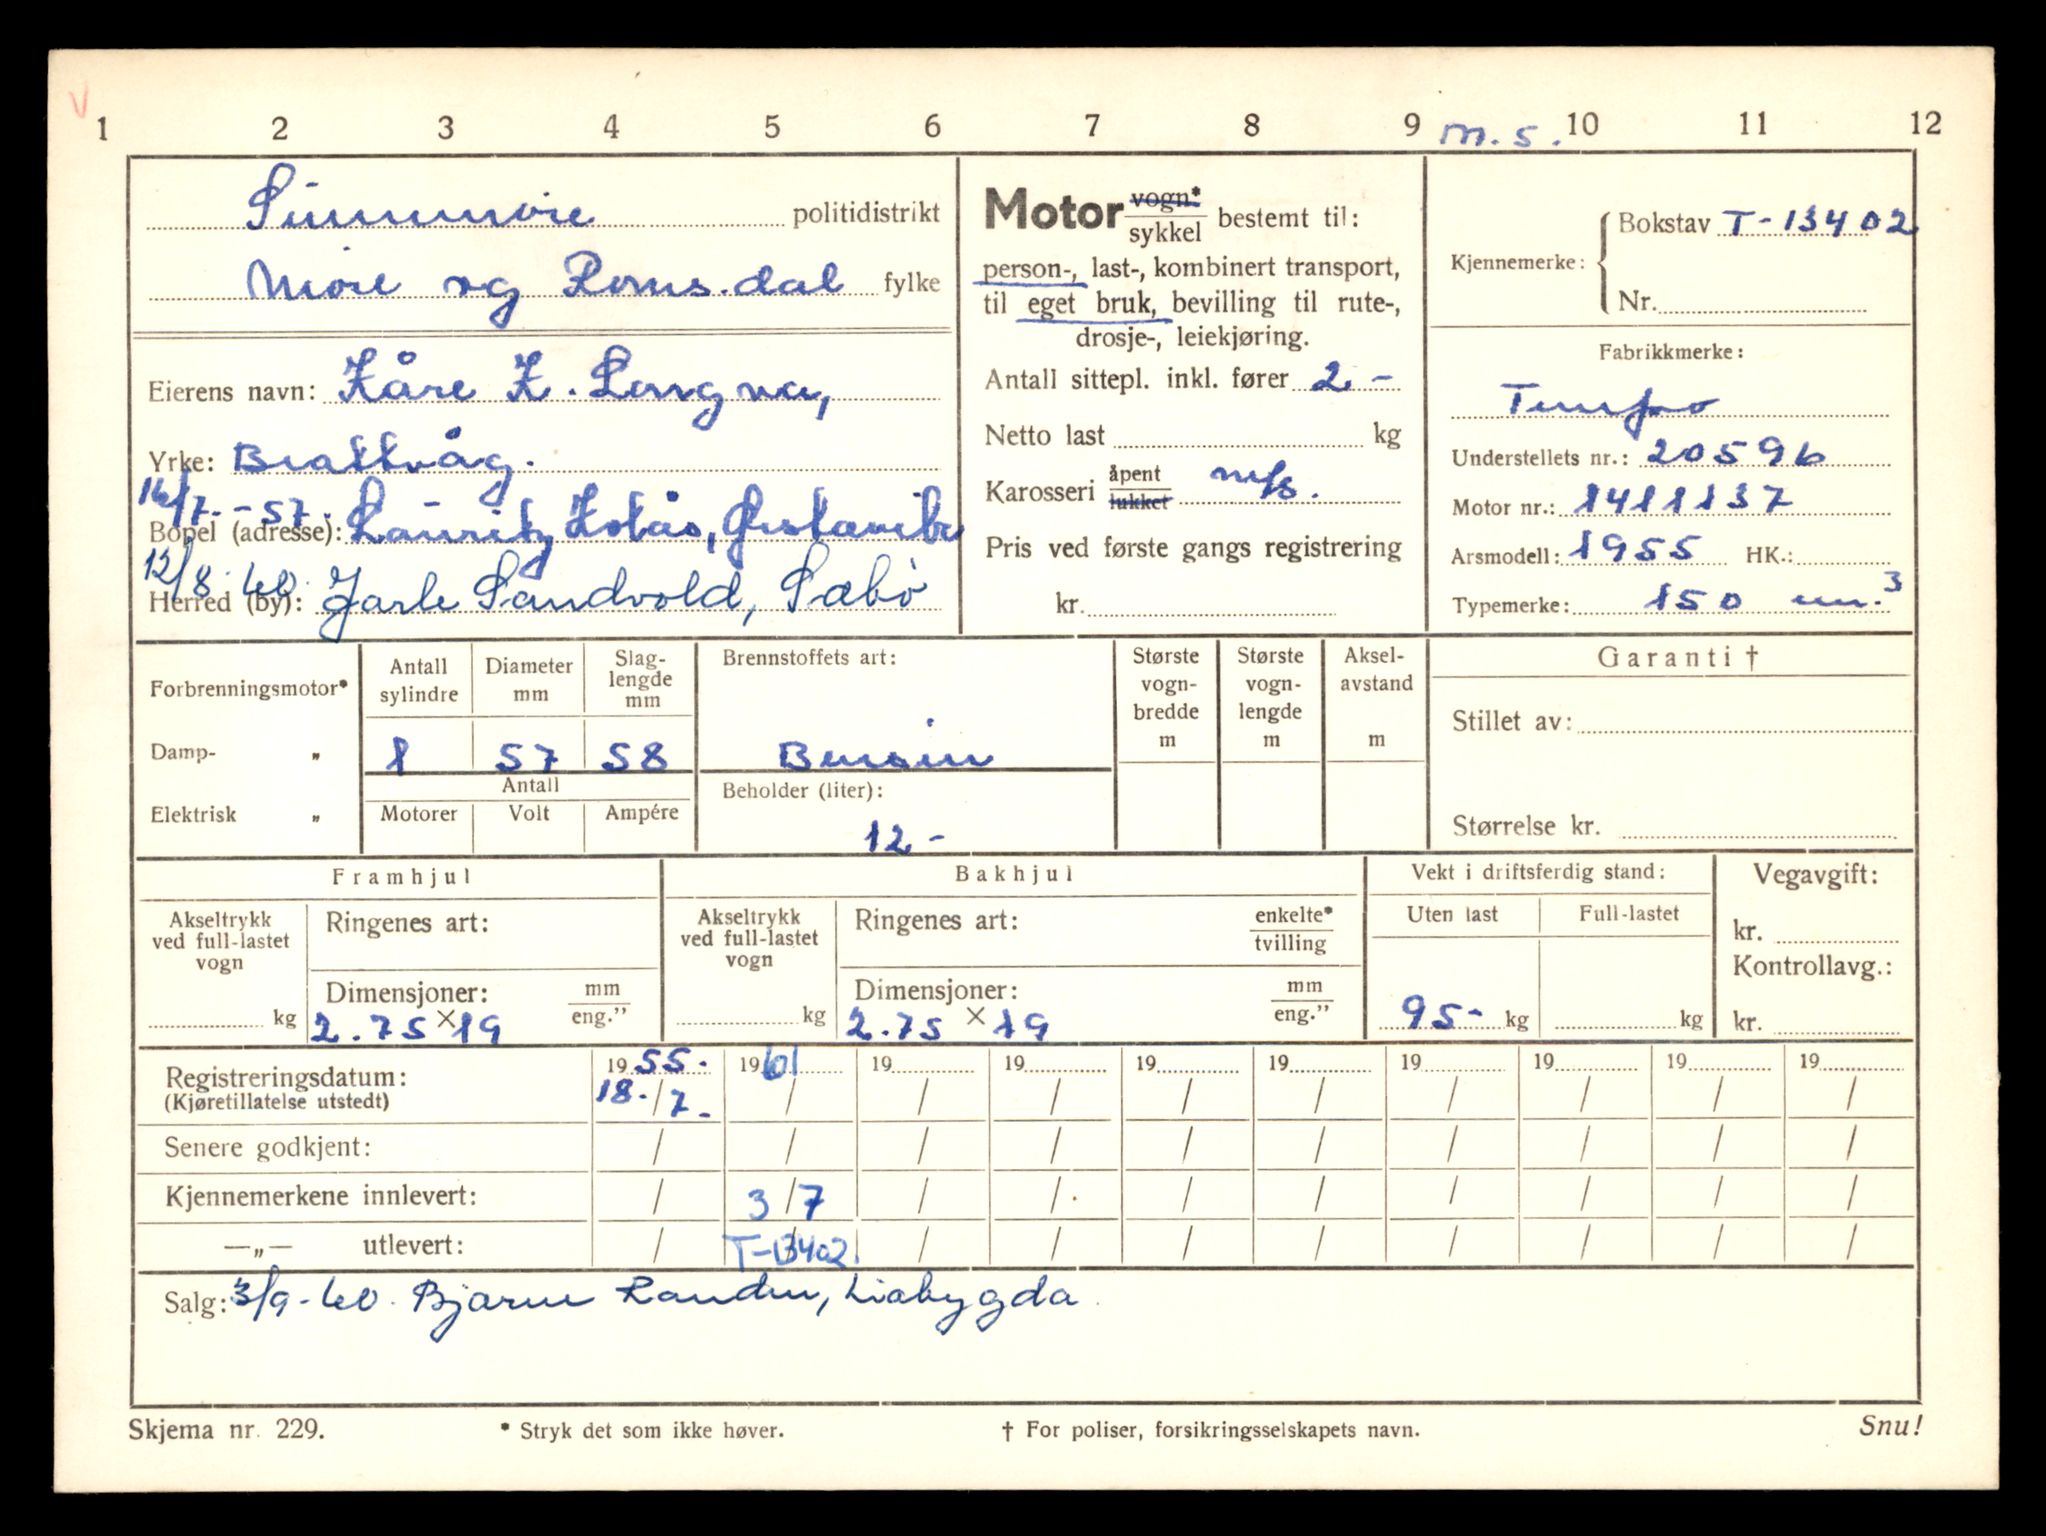 V
1 2 3 4 5 6 7 8 9 m.s. 10 11 12
Sunnmøre politidistrikt
Møre og Romsdal fylke
Eierens navn: Kåre K. Longva,
Yrke: Brattvåg.
16/7.-57.
Bopel (adresse): Lauritz Hovås, Ørstavik
12/8.60.
Herred (by): Jarle Sandvold, Sæbø
Motor vogn* / sykkel bestemt til:
person-, last-, kombinert transport,
til eget bruk, bevilling til rute-,
drosje-, leiekjøring.
Antall sittepl. inkl. fører 2 -
Netto last kg
Karosseri åpent / lukket m/s.
Pris ved første gangs registrering
kr.
Kjennemerke: Bokstav T-13402
Nr.
Fabrikkmerke:
Tempo
Understellets nr.: 20596
Motor nr.: 1411137
Arsmodell: 1955 HK.:
Typemerke: 150 cm.3
Forbrenningsmotor*
Damp- „
Elektrisk „
Antall sylindre
Diameter mm
Slag-
lengde
mm
1 57 58
Antall
Motorer Volt Ampére
Brennstoffets art:
Bensin
Beholder (liter):
12 -
Største
vogn-
bredde
m
Største
vogn-
lengde
m
Aksel-
avstand
m
Garanti †
Stillet av:
Størrelse kr.
Framhjul
Akseltrykk
ved full-lastet
vogn
kg
Ringenes art:
Dimensjoner: mm / eng.”
2.75 × 19
Bakhjul
Akseltrykk
ved full-lastet
vogn
kg
Ringenes art: enkelte* / tvilling
Dimensjoner: mm / eng.”
2.75 × 19
Vekt i driftsferdig stand:
Uten last Full-lastet
95- kg kg
Vegavgift:
kr.
Kontrollavg.:
kr.
Registreringsdatum: 1955. 1961 19 19 19 19 19 19 19 19
(Kjøretillatelse utstedt) 18./7. / / / / / / / / /
Senere godkjent: / / / / / / / / / /
Kjennemerkene innlevert: / 3/7 / / / / / / / /
—„— utlevert: / T-13402. / / / / / / / /
Salg: 3/9-60. Bjarne Randen, Liabygda
Skjema nr. 229. * Stryk det som ikke høver. † For poliser, forsikringsselskapets navn. Snu!